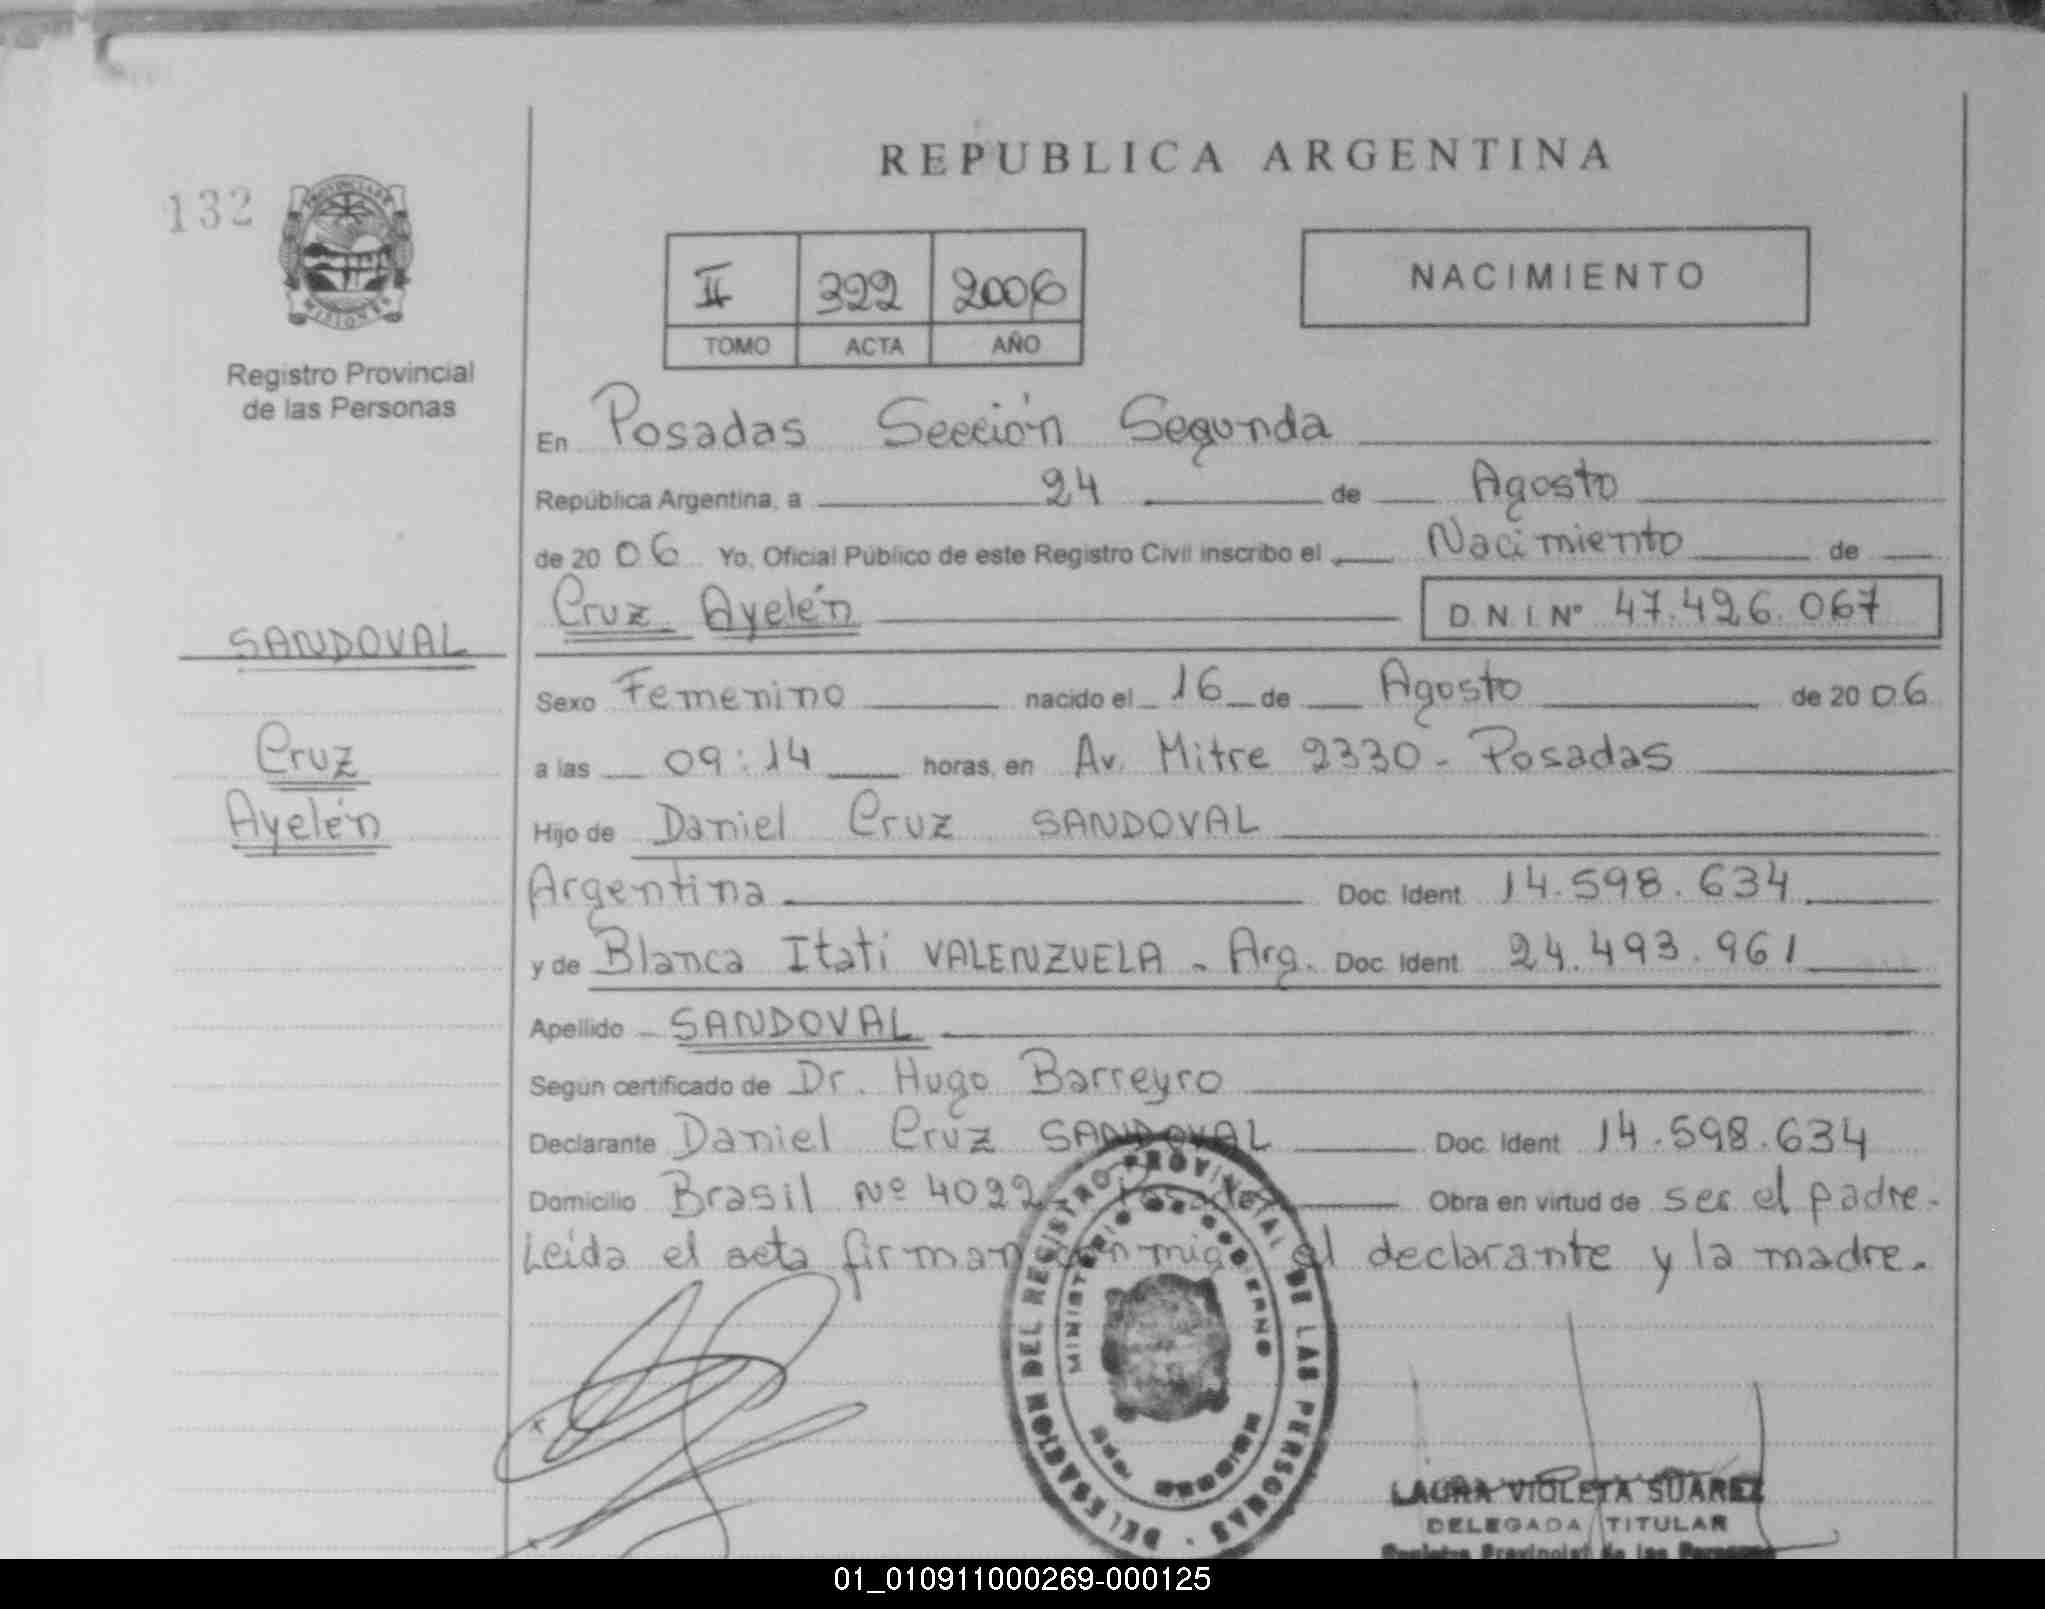 REPUBLICA ARGENTINA
132
II 322 2006
TOMO ACTA AÑO
NACIMIENTO
Registro Provincial
de las Personas
En Posadas Sección Segunda
República Argentina, a 24 de Agosto
de 20 06 Yo, Oficial Público de este Registro Civil inscribo el Nacimiento de
Cruz Ayelén D.N.I. Nº 47.426.067
SANDOVAL
Cruz
Ayelén
Sexo Femenino nacido el 16 de Agosto de 20 06
a las 09:14 horas, en Av. Mitre 2330 - Posadas
Hijo de Daniel Cruz SANDOVAL
Argentina Doc. Ident. 14.598.634
y de Blanca Itati VALENZUELA - Arg. Doc. Ident. 24.493.961
Apellido SANDOVAL
Según certificado de Dr. Hugo Barreyro
Declarante Daniel Cruz SANDOVAL Doc. Ident. 14.598.634
Domicilio Brasil Nº 4022 - Posadas Obra en virtud de ser el padre.
Leída el acta firman con migo el declarante y la madre.
DELEGACION DEL REGISTRO PROVINCIAL DE LAS PERSONAS
MINISTERIO DE GOBIERNO
LAURA VIOLETA SUAREZ
DELEGADA TITULAR
Registro Provincial de las Personas
01_010911000269-000125